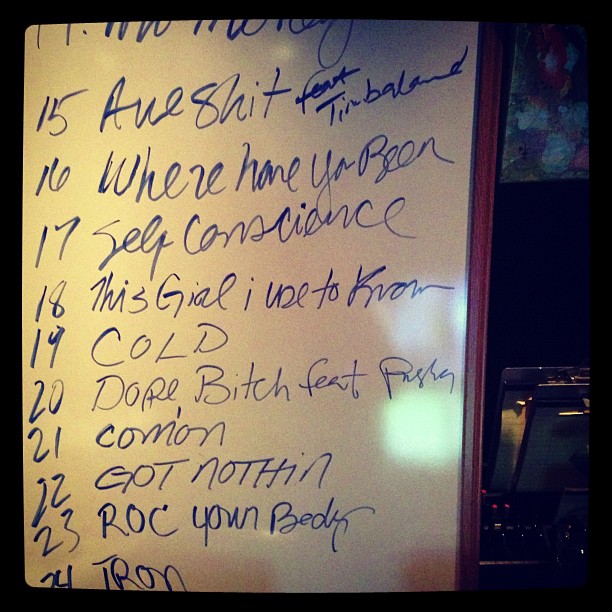 15 Aueshit feat Timbaland
16 Where have you Been
17 Self Conscience
18 This Girl i use to Know
19 COLD
20 Dope Bitch feat Pusha
21 comon
22 GOT nothin
23 ROC your Body
24 IRON